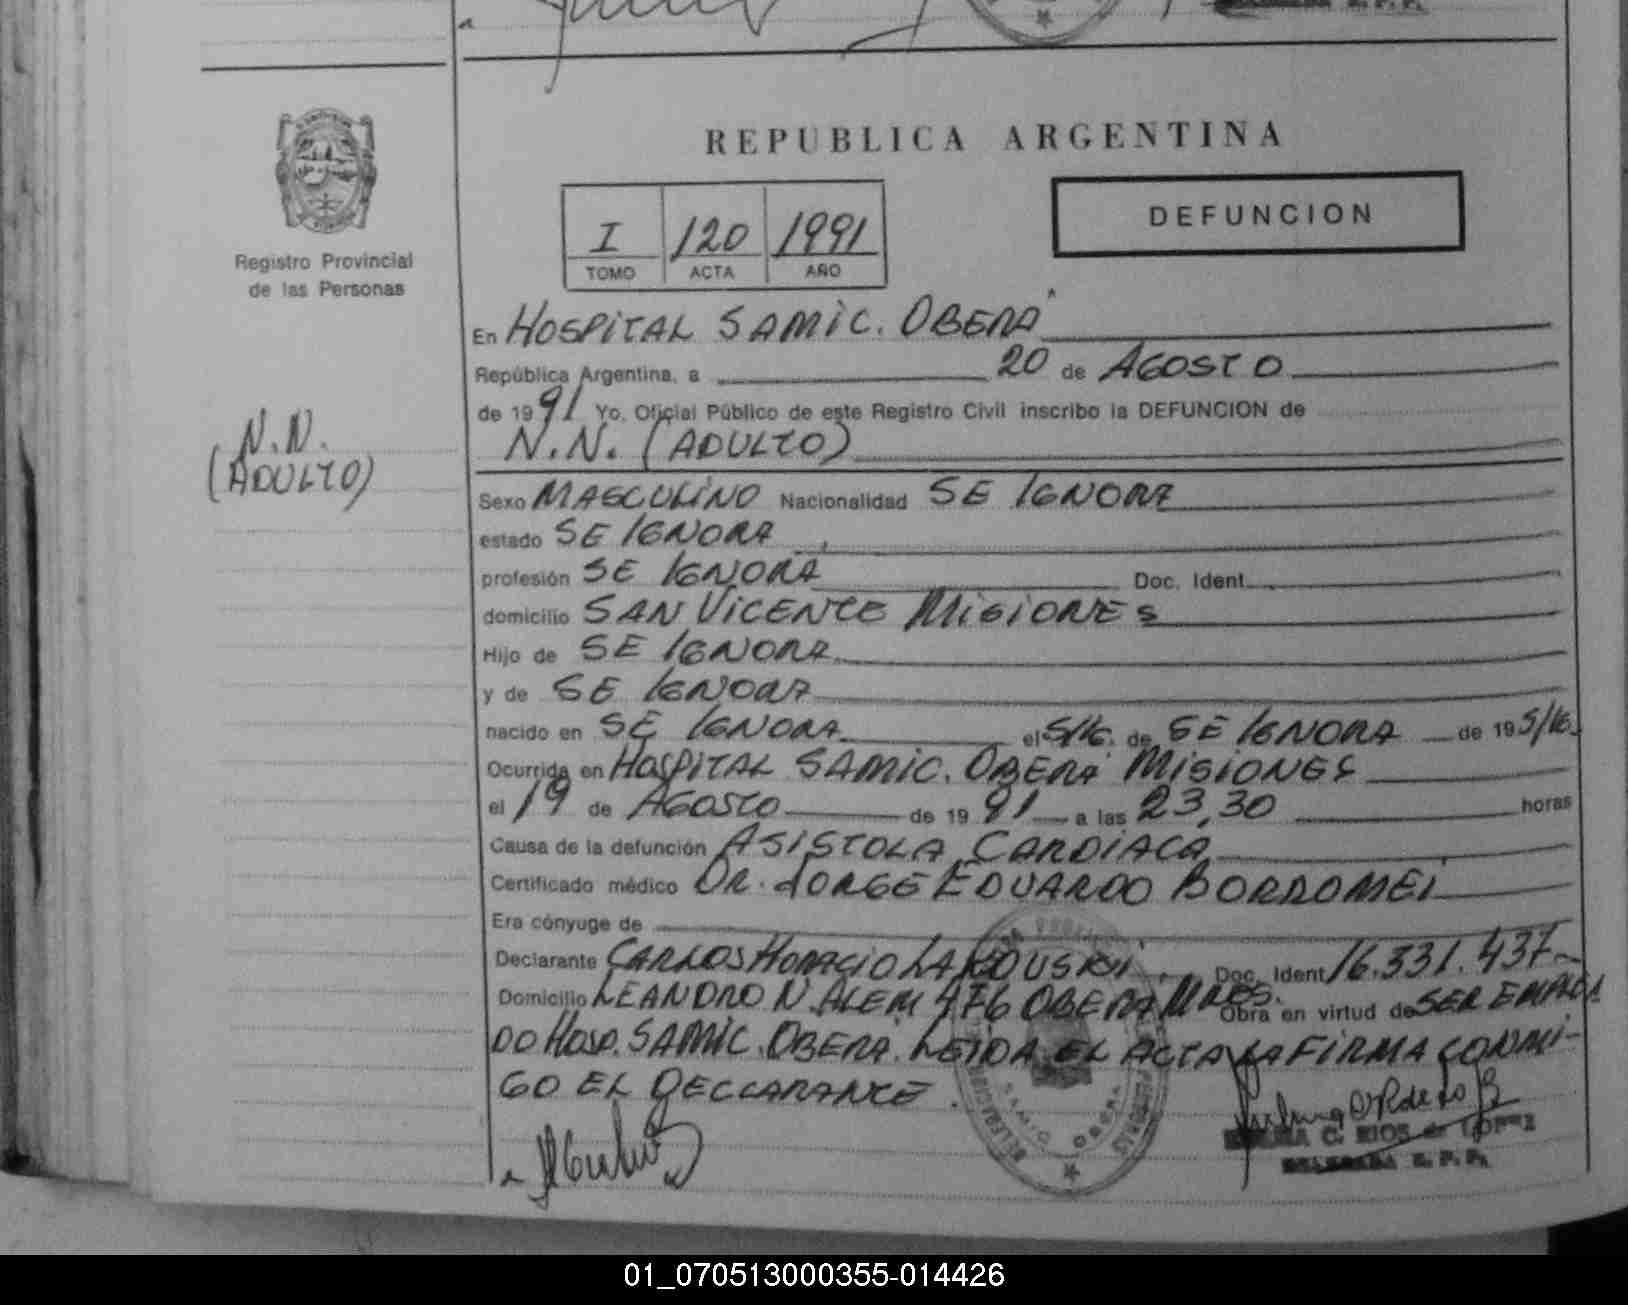 REPUBLICA ARGENTINA
Registro Provincial
de las Personas
I 120 1991
TOMO ACTA AÑO
DEFUNCION
En HOSPITAL SAMIC. OBERA
República Argentina, a 20 de AGOSTO
de 1991 Yo, Oficial Público de este Registro Civil inscribo la DEFUNCION de
N.N. (ADULTO)
N.N.
(ADULTO)
Sexo MASCULINO Nacionalidad SE IGNORA
estado SE IGNORA
profesión SE IGNORA Doc. Ident.
domicilio SAN VICENTE MISIONES
Hijo de SE IGNORA
y de SE IGNORA
nacido en SE IGNORA el S/IG. de SE IGNORA de 19 S/IG.
Ocurrida en HOSPITAL SAMIC. OBERA MISIONES
el 19 de AGOSTO de 1991 a las 23,30 horas
Causa de la defunción ASISTOLA CARDIACA
Certificado médico DR. JORGE EDUARDO BORROMEI
Era cónyuge de
Declarante CARLOS HORACIO Doc. Ident 16.331.437
Domicilio LEANDRO N. ALEM 476 OBERA Obra en virtud de SER EMPLEA
DO HOSP. SAMIC. OBERA. LEIDA EL ACTA LA FIRMA CONMI-
GO EL DECLARANTE.
SAMIC OBERA
C. RIOS de LOPEZ
DELEGADA R. P. P.
01_070513000355-014426